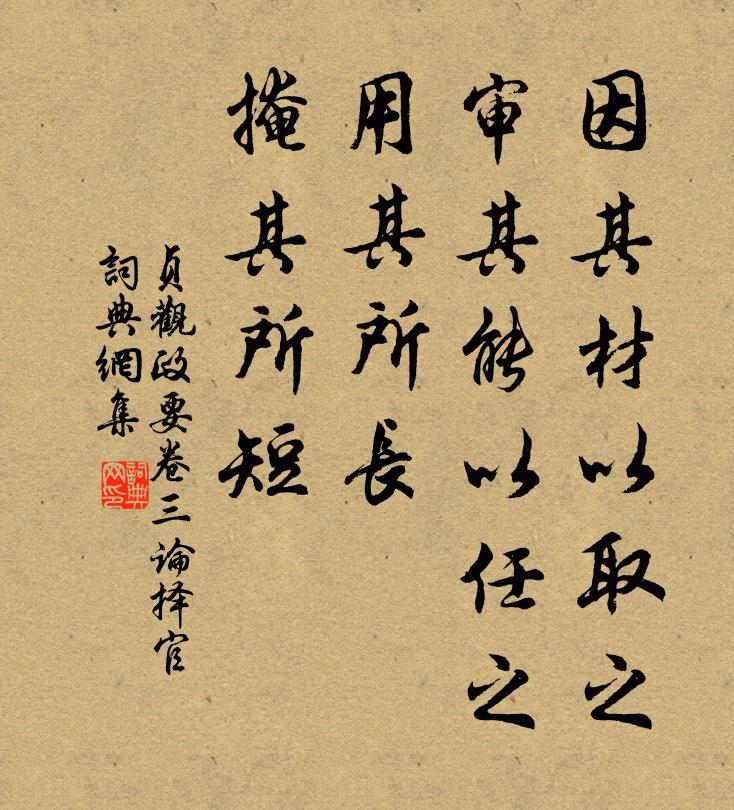 因其材以取之
审其能以任之
用其所長
掩其所短
貞觀政要卷三論择官
詞典網集
詞典网印